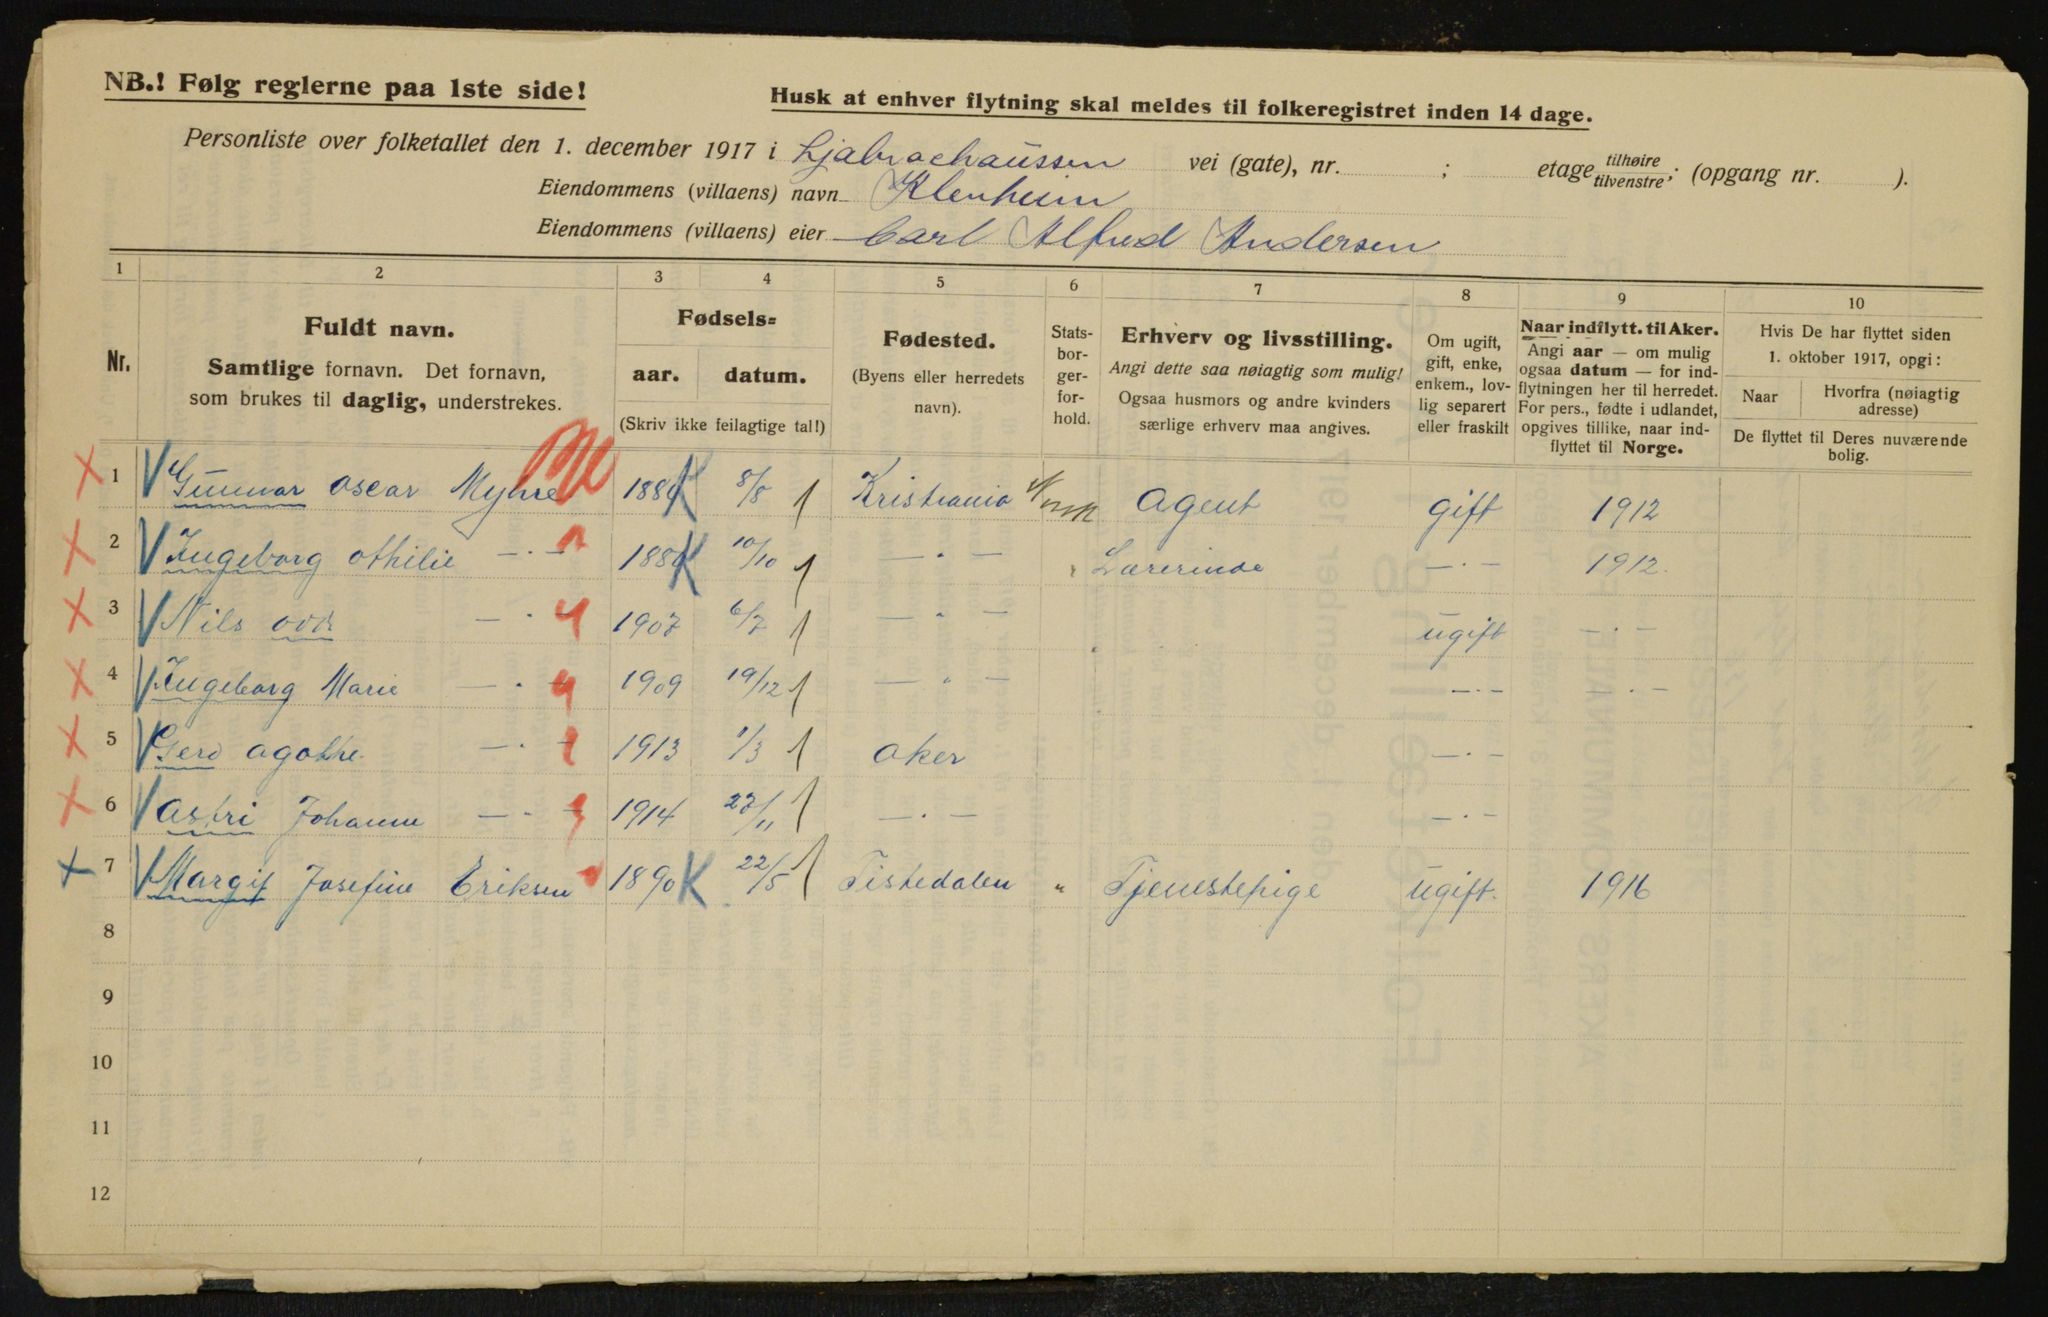 NB.! Følg reglerne paa 1ste side!
Husk at enhver flytning skal meldes til folkeregistret inden 14 dage.
Personliste over folketallet den 1. december 1917 i Ljabrochaussen vei (gate), nr. ; etage tilhøire tilvenstre; (opgang nr. ).
Eiendommens (villaens) navn Klenheim
Eiendommens (villaens) eier Carl Alfred Andersen
1 2 3 4 5 6 7 8 9 10
Nr.
Fuldt navn.
Samtlige fornavn. Det fornavn,
som brukes til daglig, understrekes.
Fødsels=
aar. datum.
(Skriv ikke feilagtige tal!)
Fødested.
(Byens eller herredets
navn).
Stats-
bor-
ger-
for-
hold.
Erhverv og livsstilling.
Angi dette saa nøiagtig som mulig!
Ogsaa husmors og andre kvinders
særlige erhverv maa angives.
Om ugift,
gift, enke,
enkem., lov-
lig separert
eller fraskilt
Naar indflytt. til Aker.
Angi aar — om mulig
ogsaa datum — for ind-
flytningen her til herredet.
For pers., fødte i udlandet,
opgives tillike, naar ind-
flyttet til Norge.
Hvis De har flyttet siden
1. oktober 1917, opgi:
Naar
Hvorfra (nøiagtig
adresse)
De flyttet til Deres nuværende
bolig.
1 Gunnar Oscar Myhre 8/8 Kristiania Norsk Agent gift 1912
2 Ingeborg Othilie — . — 10/10 — " — " Lærerinde — . — 1912.
3 Nils — . — 1907 6/7 — " — ugift — . —
4 Ingeborg Marie — . — 1909 19/12 — " — — . — — . —
5 Gerd Agathe — . — 1913 1/3 Aker — . —
6 Astri Johanne — . — 1914 27/11 — . — — . —
7 Margit Josefine Eriksen 1890 K 22/5 Tistedalen " Tjenestepige ugift. 1916
8
9
10
11
12